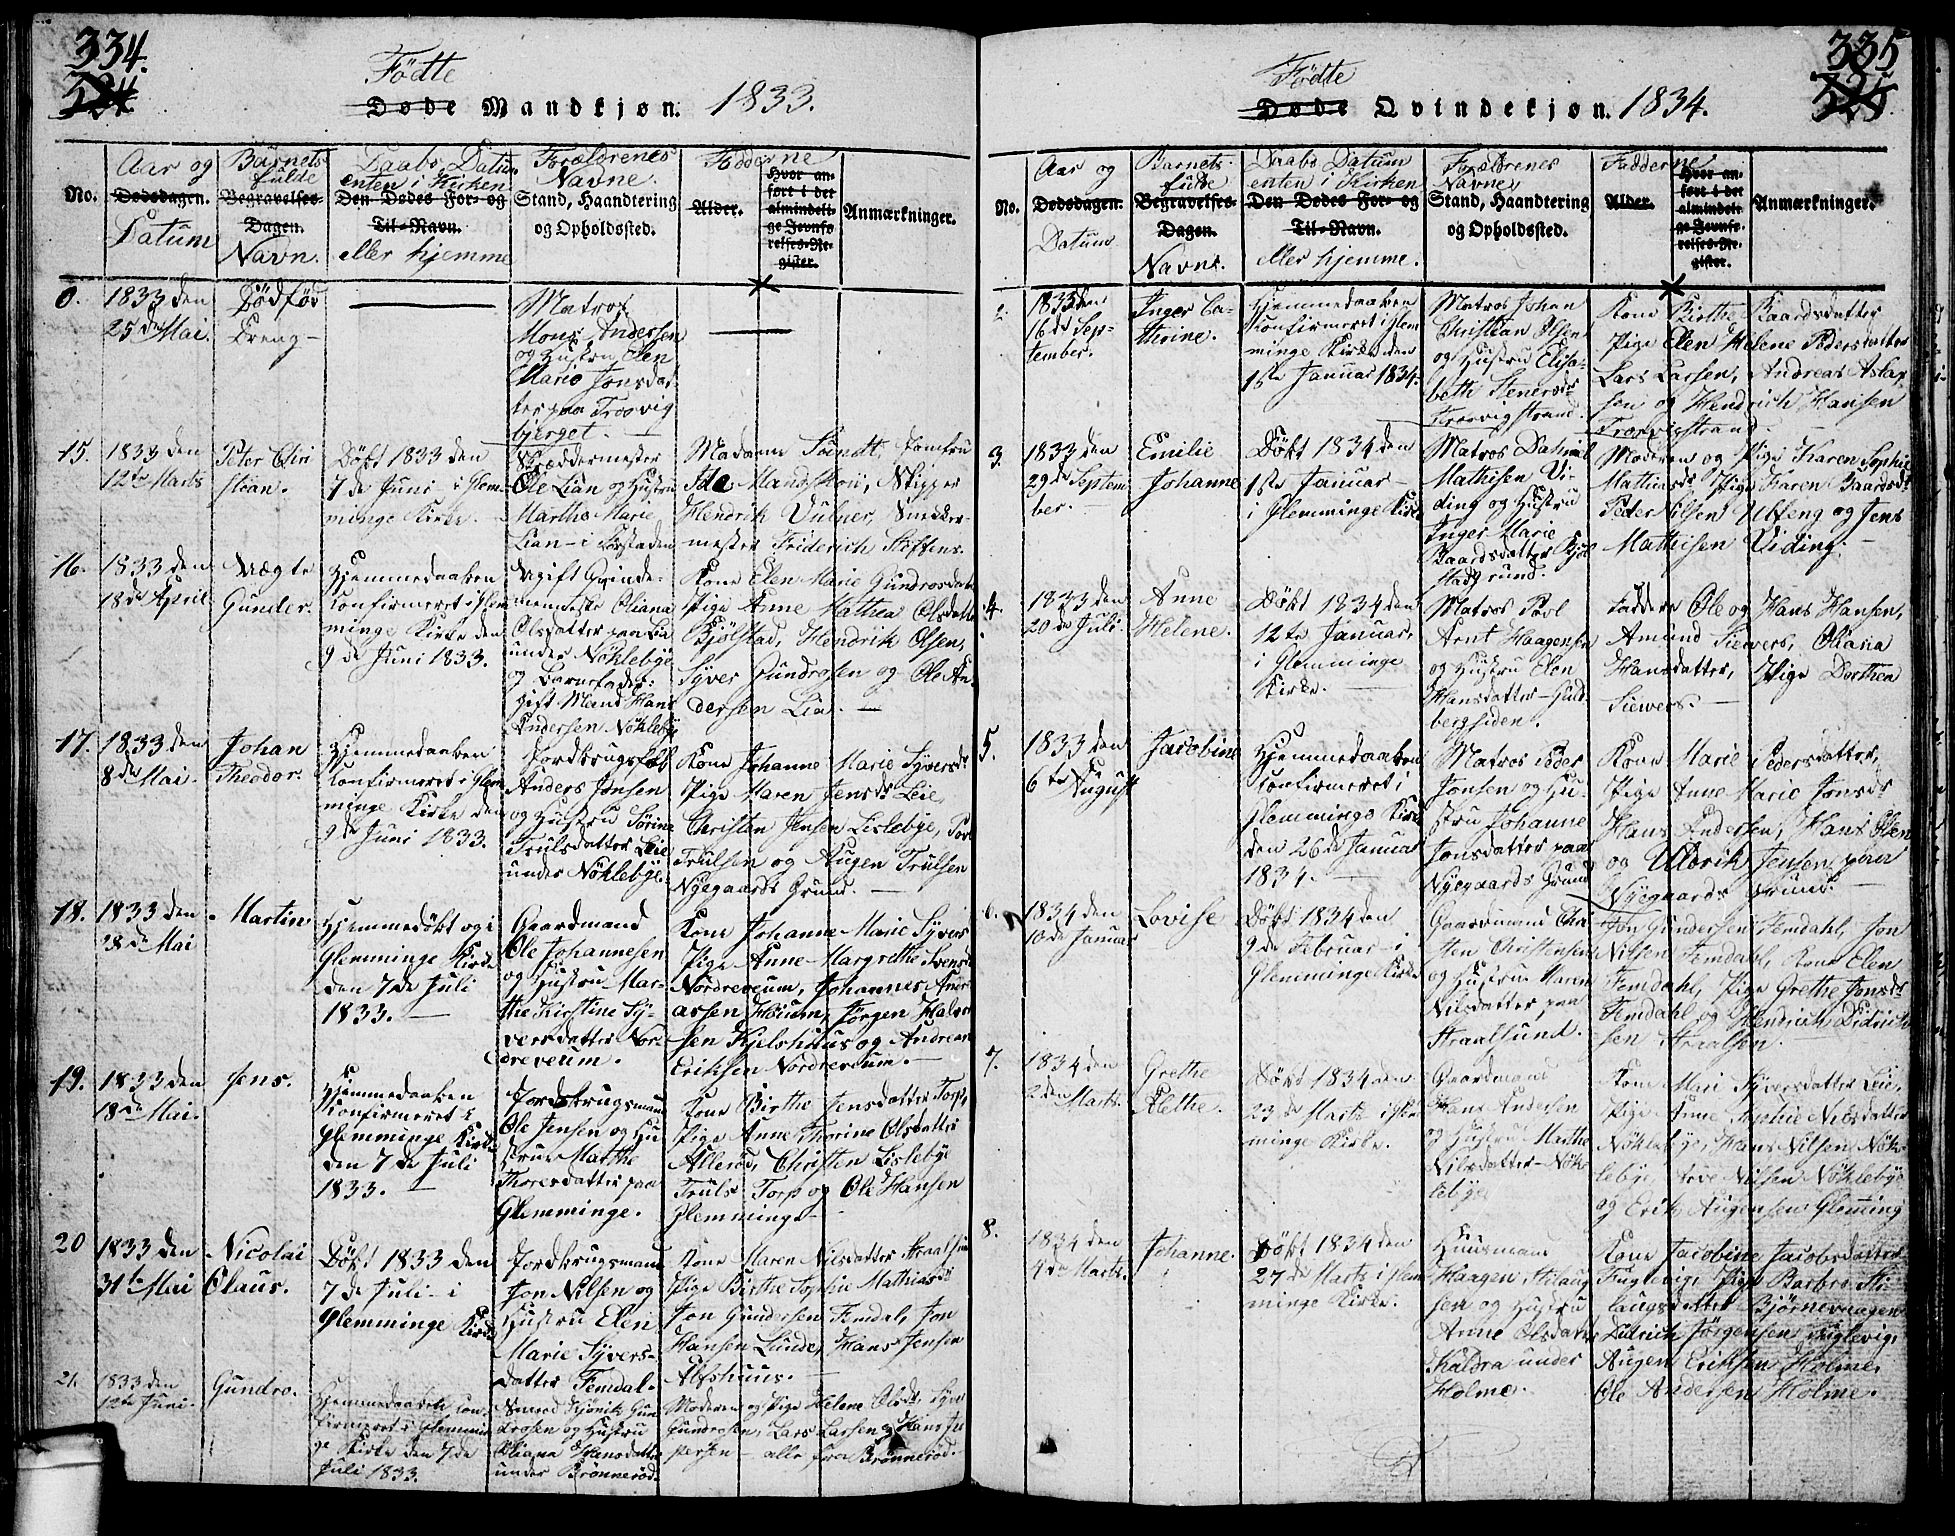 334.
Födte
Döde Mandkjøn. 1833.
No.
Aar og
Dødsdagen.
Datum
Barnets
fulde
Begravelses-
Dagen.
Navn.
Daabs Datum
enten i Kirken
Den Dødes For- og
Til-Navn.
eller hjemme
Forældrenes
Navne.
Stand, Haandtering
og Opholdssted.
Fadderne
Alder.
Hvor an-
ført i det
almindeli-
ge Jevnfø-
relses-Re-
gister.
Anmærkninger.
0.
1833 den
25de Mai.
Dödfød
Dreng
Matros
Mons Andersen
og Hustru Elen
Marie Jonsdat-
ter paa Trosvig
bjerget.
15.
1833 den
12te Marts
Peter Chri
stian.
Döbt 1833 den
7de Juni i Glem-
minge Kirke.
Skræddermester
Ole Lian og Hustru
Marthe Marie
Lian i Forstaden
Madame Svindt, Jomfru
Ida Mandskou, Skipper
Hendrik Vulner, Snedker-
mester Friderich Steffens.
16.
1833 den
18de April
Nægte
Gunder.
Hjemmedaaben
Konfirmeret i Glem
minge Kirke den
9de Juni 1833.
Ugift Qvinde-
menneske Oliana
Olsdatter paa Lia
under Nöklebye
og Barnefader:
Gift Mand Hans
Andersen Nöklebye
Kone Elen Marie Gundrosdatr
Pige Anne Mathea Olsdatter
Kjölstad, Hendrik Olsen,
Syver Gundrosen og Ole An-
dersen Lia.
17.
1833 den
8de Mai.
Johan
Theodor.
Hjemmedaaben
Konfirmeret i Glem
minge Kirke den
9de Juni 1833.
Jordbrugsfolk
Anders Jensen
og Hustru Sörine
Trulsdatter Leie
under Nöklebye.
Kone Johanne Marie Syversdr
Pige Maren Jensdr Leie,
Christen Jensen Lislebye, Povl
Trulsen og Augen Trulsen
Nyegaards Grund.
18.
1833 den
28de Mai
Martin
Hjemmedöbt og i
Glemminge Kirke
den 7de Juli
1833.
Gaardmand
Ole Johannesen
og Hustru Mar-
the Kirstine Sy-
versdatter Nor-
dreveum.
Kone Johanne Marie Syvers
Pige Anne Margrethe Svensdr
Nordreveum, Johannes Andr
assen Houm, Jørgen Halvor
sen Kjelshuus og Andreas
Eriksen Nordreveum.
19.
1833 den
18de Mai.
Jens.
Hjemmedaaben
Konfirmeret i
Glemminge Kirke
den 7de Juli
1833.
Jordbrugsmand
Ole Jensen og Hu
strue Marthe
Thoresdatter paa
Glemminge.
Kone Birthe Jensdatter Torp,
Pige Anne Thorine Olsdatter
Alleröd, Christen Lislebye
Truls Torp og Ole Hansen
Glemminge
20
1833 den
31te Mai
Nicolai
Claus.
Döbt 1833 den
7de Juli i
Glemminge Kirke
Jordbrugsmand
Jon Nilsen og
Hustru Elen
Marie Syvers-
datter Femdal.
Kone Maren Nilsdatter Straalsund
Pige Birthe Sophie Mathiasdr
Jon Gundersen Femdal, Jon
Hansen Lunde, Hans Jensen
Alfshuus.
21.
1833 den
12te Juni.
Gundro.
Hjemmedaaben kon-
firmeret i Glemmin
ge Kirke den 7de
Juli 1833.
Gun
drosen og Hustru
Oliana Hansdatter
under Brönneröd.
Moderen og Pige Helene Olsdr, Syver
Gundrosen, Lars Larsen og Hans Je
persen alle fra Brönneröd.
335
325
Födte
Döde Qvindekjøn. 1834.
No.
Aar og
Dødsdagen.
Datum
Barnets
fulde
Begravelses-
Dagen.
Navne.
Daabs Datum
enten i Kirken
Den Dødes For- og
Til-Navn.
eller hjemme.
Forældrenes
Navne,
Stand, Haandtering
og Opholdsted.
Fadderne
Alder.
Hvor an-
ført i det
almindeli-
ge Jevnfø-
relses-Re-
gister.
Anmærkninger.
2.
1833 den
16de Sep-
tember.
Inger Ca-
thrine.
Hjemmedaaben
Konfirmeret i Glem
minge Kirke den
1ste Januar 1834.
Matros Johan
Christian Olsen
og Hustru Elisa-
beth Stenersdr
Trosvigstrand.
Kone Birthe Baardsdatter
Pige Elen Helene Pedersdatter
Lars Larsen, Andreas Aslak
sen og Hendrich Hansen
Trosvigstrand.
3.
1833 den
29de Septem
ber.
Emilie
Johanne
Döbt 1834 den
1ste Januar
i Glemminge Kirke
Matros Daniel
Mathisen Vi-
ding og Hustru
Inger Marie
Baardsdatter Kjöl
stadgrund.
Moderen og Pige Karen Sophie
Mathiasdr Pige Karen Baardsdr
Peder Nilsen Ulfeng og Jens
Mathisen Viding.
4.
1833 den
20de Juli.
Anne
Helene.
Döbt 1834 den
12te Januar,
i Glemminge
Kirke.
Matros Povl
Arnt Haagensen
og Hustru Elen
Hansdatter Huld
bergsiden.
Faddere Ole og Hans Hansen,
Amund Siewers, Oliana
Hansdatter, Pige Dorthea
Siewers.
5.
1833 den
6te August
Jacobine
Hjemmedaaben
Confirmeret i
Glemminge Kirke
den 26de Januar
1834.
Matros Peder
Jonsen og Hu-
stru Johanne
Jonsdatter paa
Nyegaards Grund
Kone Marie Pedersdatter,
Pige Anne Marie Jonsdr
Hans Andersen, Hans Olsen
og Uldrik Jensen paa
Nyegaards Grund.
6.
1834 den
10de Januar
Lovise
Döbt 1834 den
9de Februar i
Glemminge Kirke
Gaardmand Chri
sten Christensen
og Hustru Maren
Nilsdatter paa
Straalsund.
Jon Gundersen Femdahl, Jon
Nilsen Femdahl, Kone Elen
Femdahl, Pige Grethe Jonsdr
Femdahl og Hendrich Didrick
sen Straalsen.
7.
1834 den
2den Marts.
Grethe
Elethe.
Döbt 1834 den
23de Marts i Glem
minge Kirke.
Gaardmand
Hans Andersen
og Hustru Marthe
Nilsdatter Nök
lebye
Kone Mari Syversdatter Leie,
Pige Anne Sophie Nilsdatter
Nöklebye, Hans Nilsen Nök-
lebye, Arve Nilsen Nöklebye
og Erik Augensen Glemming
8.
1834 den
4de Marts.
Johanne.
Döbt 1834 den
27de Marts i Glem
minge Kirke.
Huusmand
Haagen Aslaug
sen og Hustru
Anne Olsdatter
Kaldra under
Holme.
Kone Jacobine Jacobsdatter
Fuglevig, Pige Barbro As-
laugsdatter Björnevaagen
Didrich Jörgensen Fuglevig,
Augen Eriksen Holme,
Ole Andersen Holme.